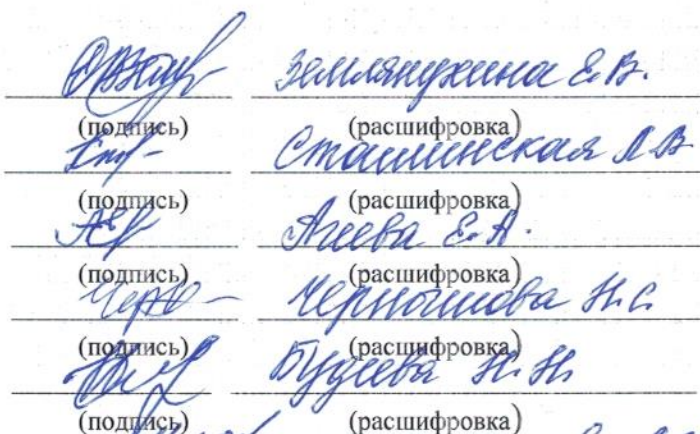 Землянухина Е.В.
(подпись) (расшифровка)
Сташинская Л.В
(подпись) (расшифровка)
Агеева Е.А.
(подпись) (расшифровка)
Чернышова Н.С.
(подпись) (расшифровка)
Будеева Н.Н
(подпись) (расшифровка)